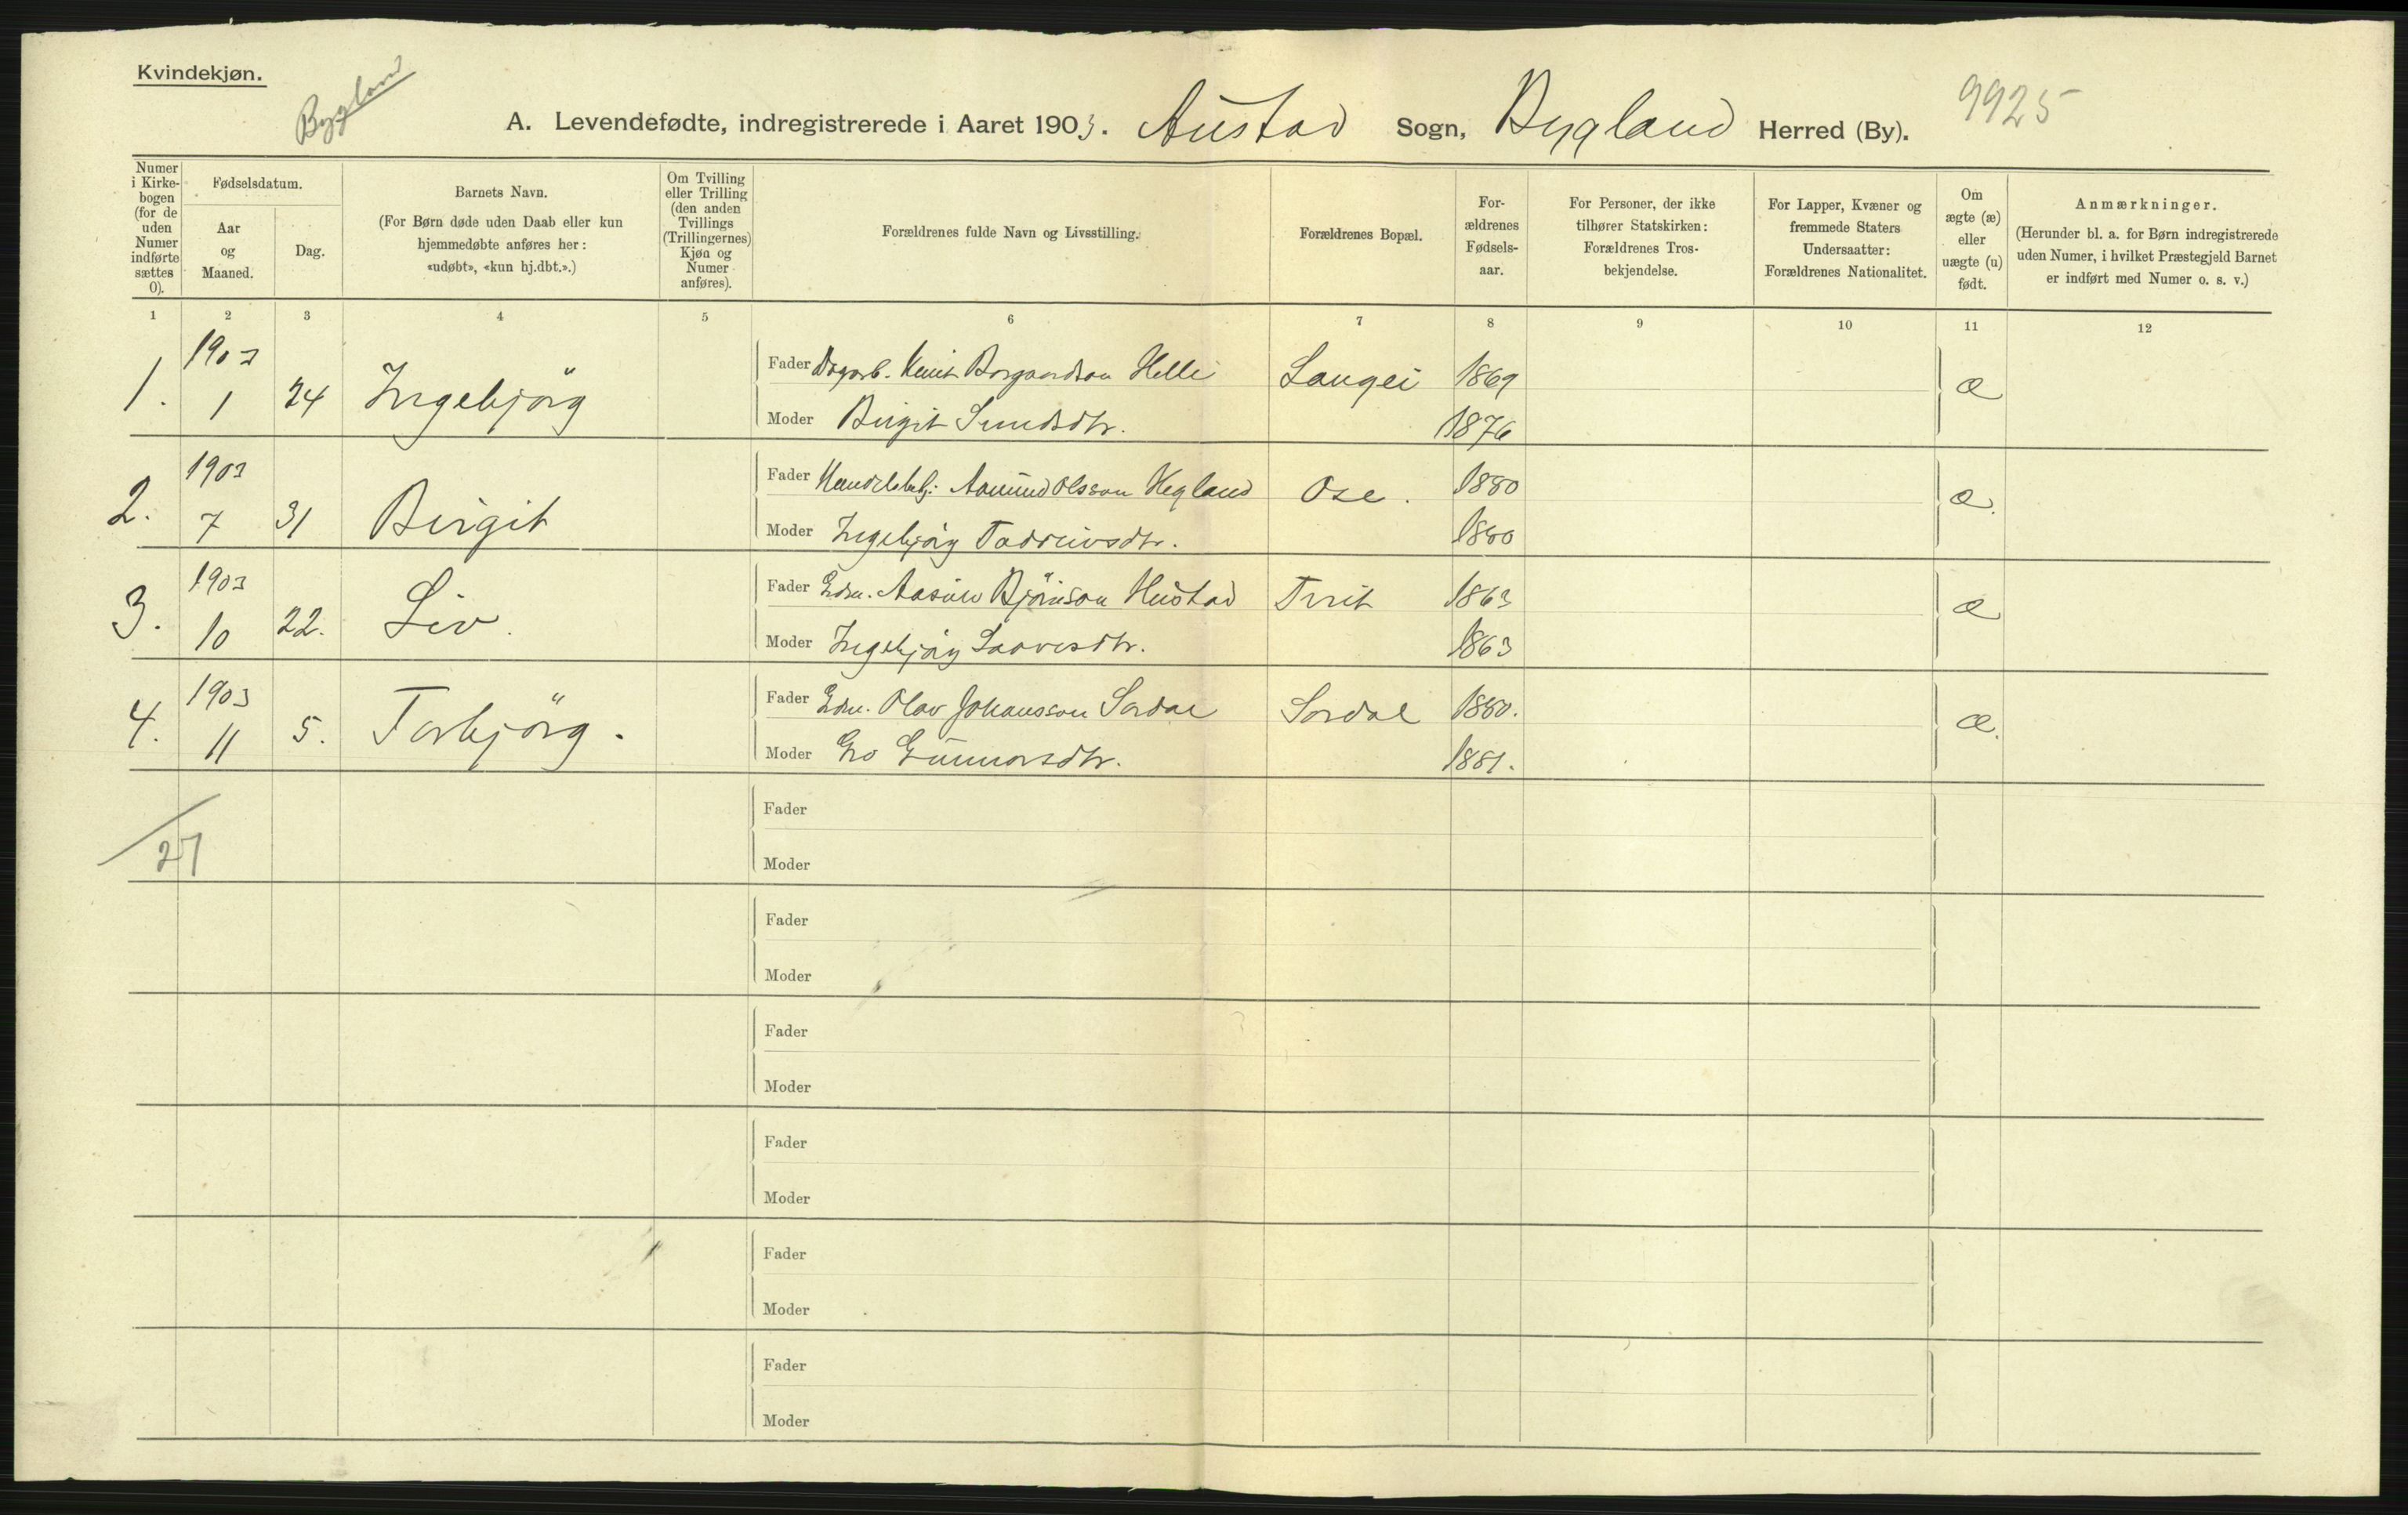 Kvindekjøn.
Bygland
9925
A. Levendefødte, indregistrerede i Aaret 1903. Austad Sogn, Bygland Herred (By).
Numer i Kirkebogen (for de uden Numer indførte sættes 0).
Fødselsdatum.
Aar og Maaned.
Dag.
Barnets Navn.
(For Børn døde uden Daab eller kun hjemmedøbte anføres her: «udøbt», «kun hj.dbt.».)
Om Tvilling eller Trilling (den anden Tvillings (Trillingernes) Kjøn og Numer anføres).
Forældrenes fulde Navn og Livsstilling.
Forældrenes Bopæl.
Forældrenes Fødselsaar.
For Personer, der ikke tilhører Statskirken: Forældrenes Trosbekjendelse.
For Lapper, Kvæner og fremmede Staters Undersaatter: Forældrenes Nationalitet.
Om ægte (æ) eller uægte (u) født.
Anmærkninger.
(Herunder bl. a. for Børn indregistrerede uden Numer, i hvilket Præstegjeld Barnet er indført med Numer o. s. v.)
1 2 3 4 5 6 7 8 9 10 11 12
1. 1903 1 24 Ingebjörg Fader Dagarb. Knut Borgardson Helle Langei 1869 æ
Moder Birgit Sundsdtr. 1876
2. 1903 7 31 Birgit Fader Aamund Olsson Hegland Ose. 1880 æ.
Moder Ingebjörg Taddeivsdtr. 1880
3. 1903 10 22. Liv. Fader Gdm. Björnson Austad 1863 æ
Moder Ingebjörg Saavesdtr. 1863
4. 1903 11 5. Torbjörg. Fader Gdm. Olav Johansson Sordal Sordal 1880. æ.
Moder Gro Gunnarsdtr. 1881.
27
Fader
Moder
Fader
Moder
Fader
Moder
Fader
Moder
Fader
Moder
Fader
Moder